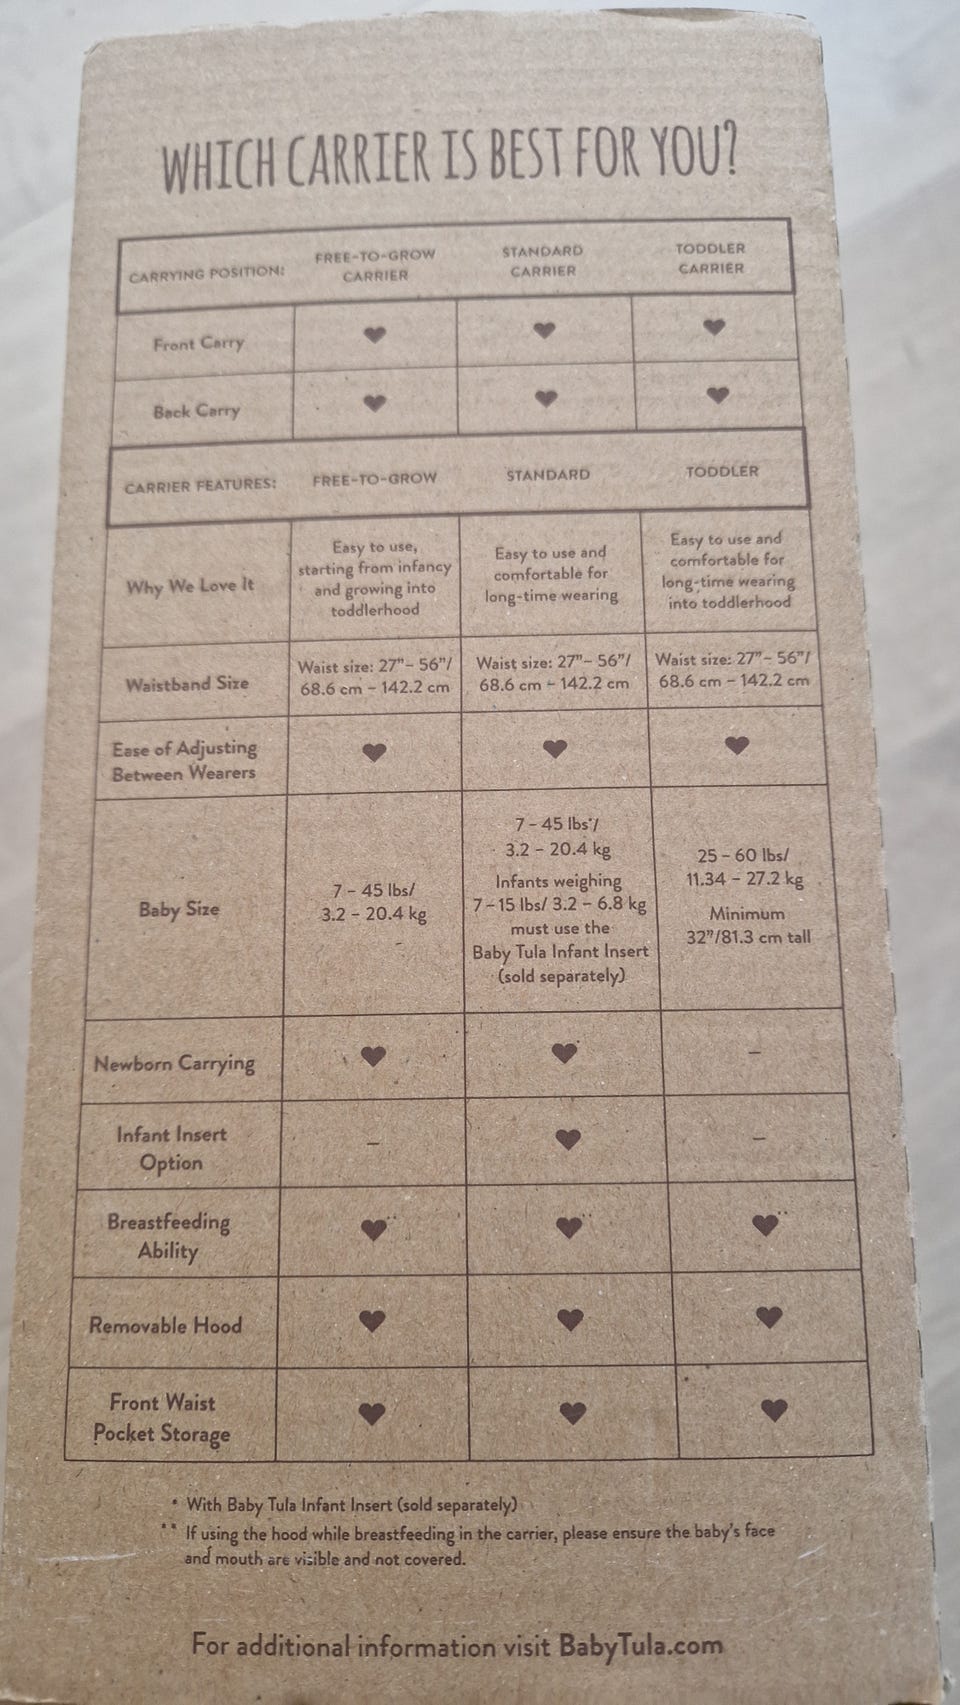 WHICH CARRIER IS BEST FOR YOU?
CARRYING POSITION: FREE-TO-GROW CARRIER STANDARD CARRIER TODDLER CARRIER
Front Carry ♥ ♥ ♥
Back Carry ♥ ♥ ♥
CARRIER FEATURES: FREE-TO-GROW STANDARD TODDLER
Why We Love It
Easy to use,
starting from infancy
and growing into
toddlerhood
Easy to use and
comfortable for
long-time wearing
Easy to use and
comfortable for
long-time wearing
into toddlerhood
Waistband Size
Waist size: 27”– 56”/
68.6 cm – 142.2 cm
Waist size: 27”– 56”/
68.6 cm – 142.2 cm
Waist size: 27”– 56”/
68.6 cm – 142.2 cm
Ease of Adjusting
Between Wearers
♥ ♥ ♥
Baby Size
7 – 45 lbs/
3.2 – 20.4 kg
7 – 45 lbs*/
3.2 – 20.4 kg
Infants weighing
7 – 15 lbs/ 3.2 – 6.8 kg
must use the
Baby Tula Infant Insert
(sold separately)
25 – 60 lbs/
11.34 – 27.2 kg
Minimum
32”/81.3 cm tall
Newborn Carrying ♥ ♥ –
Infant Insert
Option
– ♥ –
Breastfeeding
Ability
♥** ♥** ♥**
Removable Hood ♥ ♥ ♥
Front Waist
Pocket Storage
♥ ♥ ♥
* With Baby Tula Infant Insert (sold separately)
** If using the hood while breastfeeding in the carrier, please ensure the baby’s face
and mouth are visible and not covered.
For additional information visit BabyTula.com